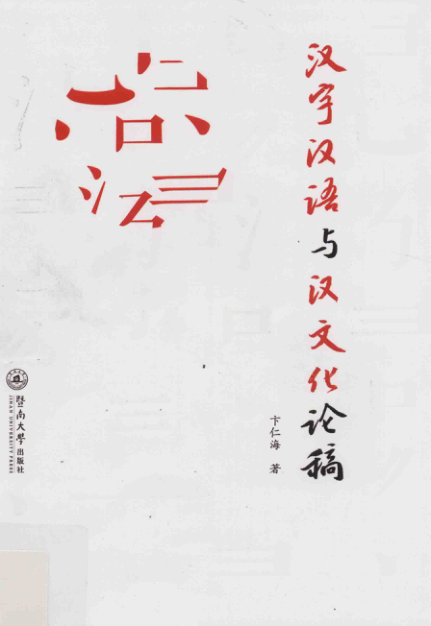 汉字汉语与汉文化论稿
卞仁海 著
暨南大学出版社
JINAN UNIVERSITY PRESS